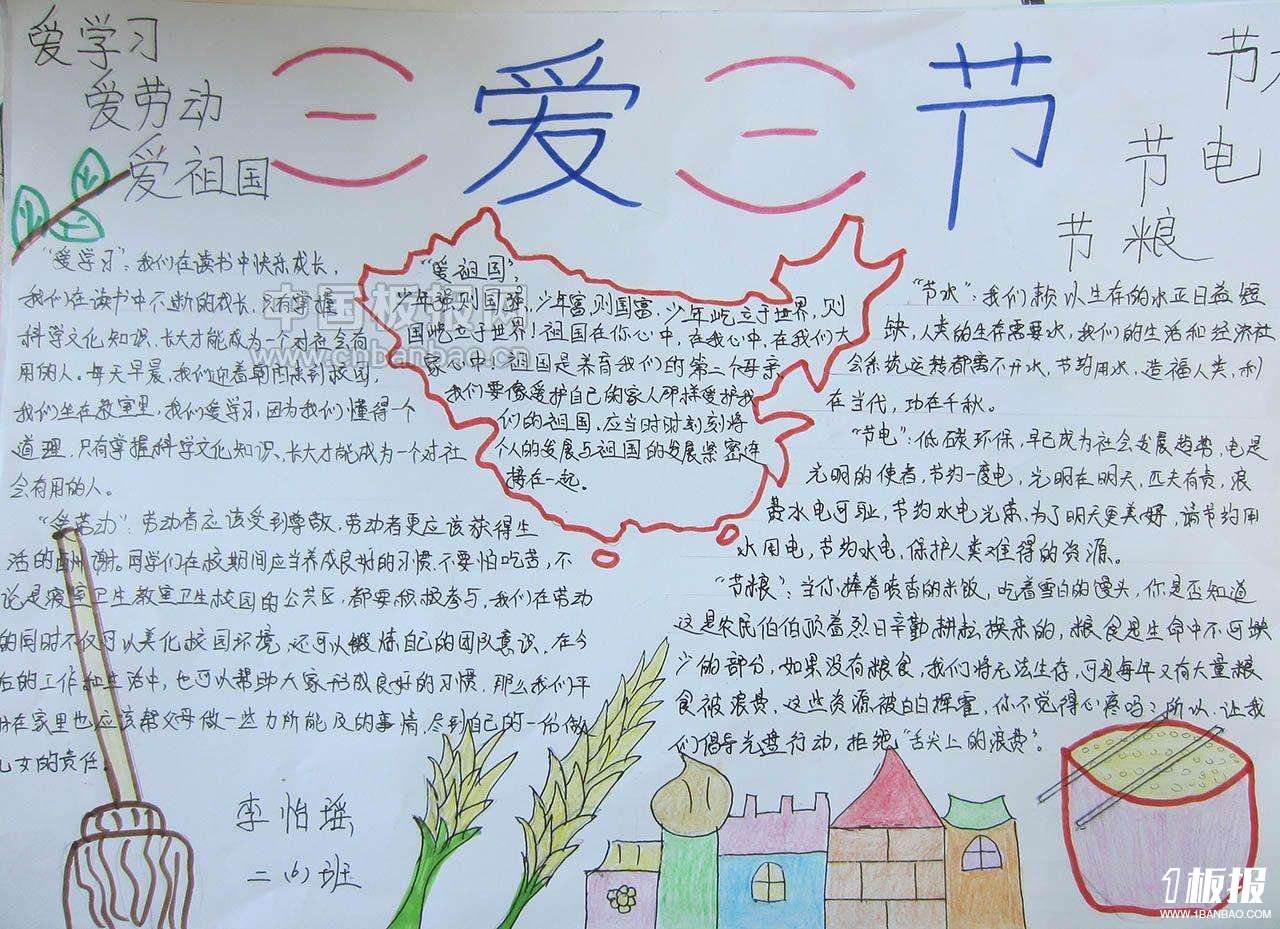 爱学习
爱劳动
爱祖国
三爱三节
节
节电
节粮
“爱学习”：我们在读书中快乐成长，
我们在读书中不断的成长，只有掌握
科学文化知识，长大才能成为一个对社会有
用的人。每天早晨，我们迎着朝阳来到校园，
我们坐在教室里，我们爱学习，因为我们懂得一个
道理，只有掌握科学文化知识，长大才能成为一个对社
会有用的人。
“爱劳动”：劳动者应该受到尊敬，劳动者更应该获得生
活的酬谢。同学们在校期间应当养成良好的习惯，不要怕吃苦，不
论是寝室卫生教室卫生校园的公共区，都要积极参与，我们在劳动
的同时不仅可以美化校园环境，还可以锻炼自己的团队意识，在今
后的工作和生活中，也可以帮助大家形成良好的习惯，那么我们平
时在家里也应该帮父母做一些力所能及的事情，尽到自己的一份做
儿女的责任。
“爱祖国”：
少年强则国强，少年富则国富，少年屹立于世界，则
国屹立于世界！祖国在你心中，在我心中，在我们大
家心中！祖国是养育我们的第二个母亲
我们要像爱护自己的家人那样爱护我
们的祖国，应当时时刻刻将
个人的发展与祖国的发展紧密连
接在一起。
“节水”：我们赖以生存的水正日益短
缺，人类的生存需要水，我们的生活和经济社
会系统运转都离不开水，节约用水，造福人类，利
在当代，功在千秋。
“节电”：低碳环保，早已成为社会发展趋势，电是
光明的使者，节约一度电，光明在明天，匹夫有责，浪
费水电可耻，节约水电光荣，为了明天更美好，请节约用
水用电，节约水电，保护人类难得的资源。
“节粮”：当你捧着喷香的米饭，吃着雪白的馒头，你是否知道
这是农民伯伯顶着烈日辛勤耕耘换来的，粮食是生命中不可缺
少的部分，如果没有粮食，我们将无法生存，可是每年又有大量粮
食被浪费，这些资源被白白挥霍，你不觉得心疼吗？所以，让我
们倡导光盘行动，拒绝“舌尖上的浪费”。
李怡瑶
二（6）班
中国板报网
www.chbanbao.cn
1板报
WWW.1BANBAO.COM